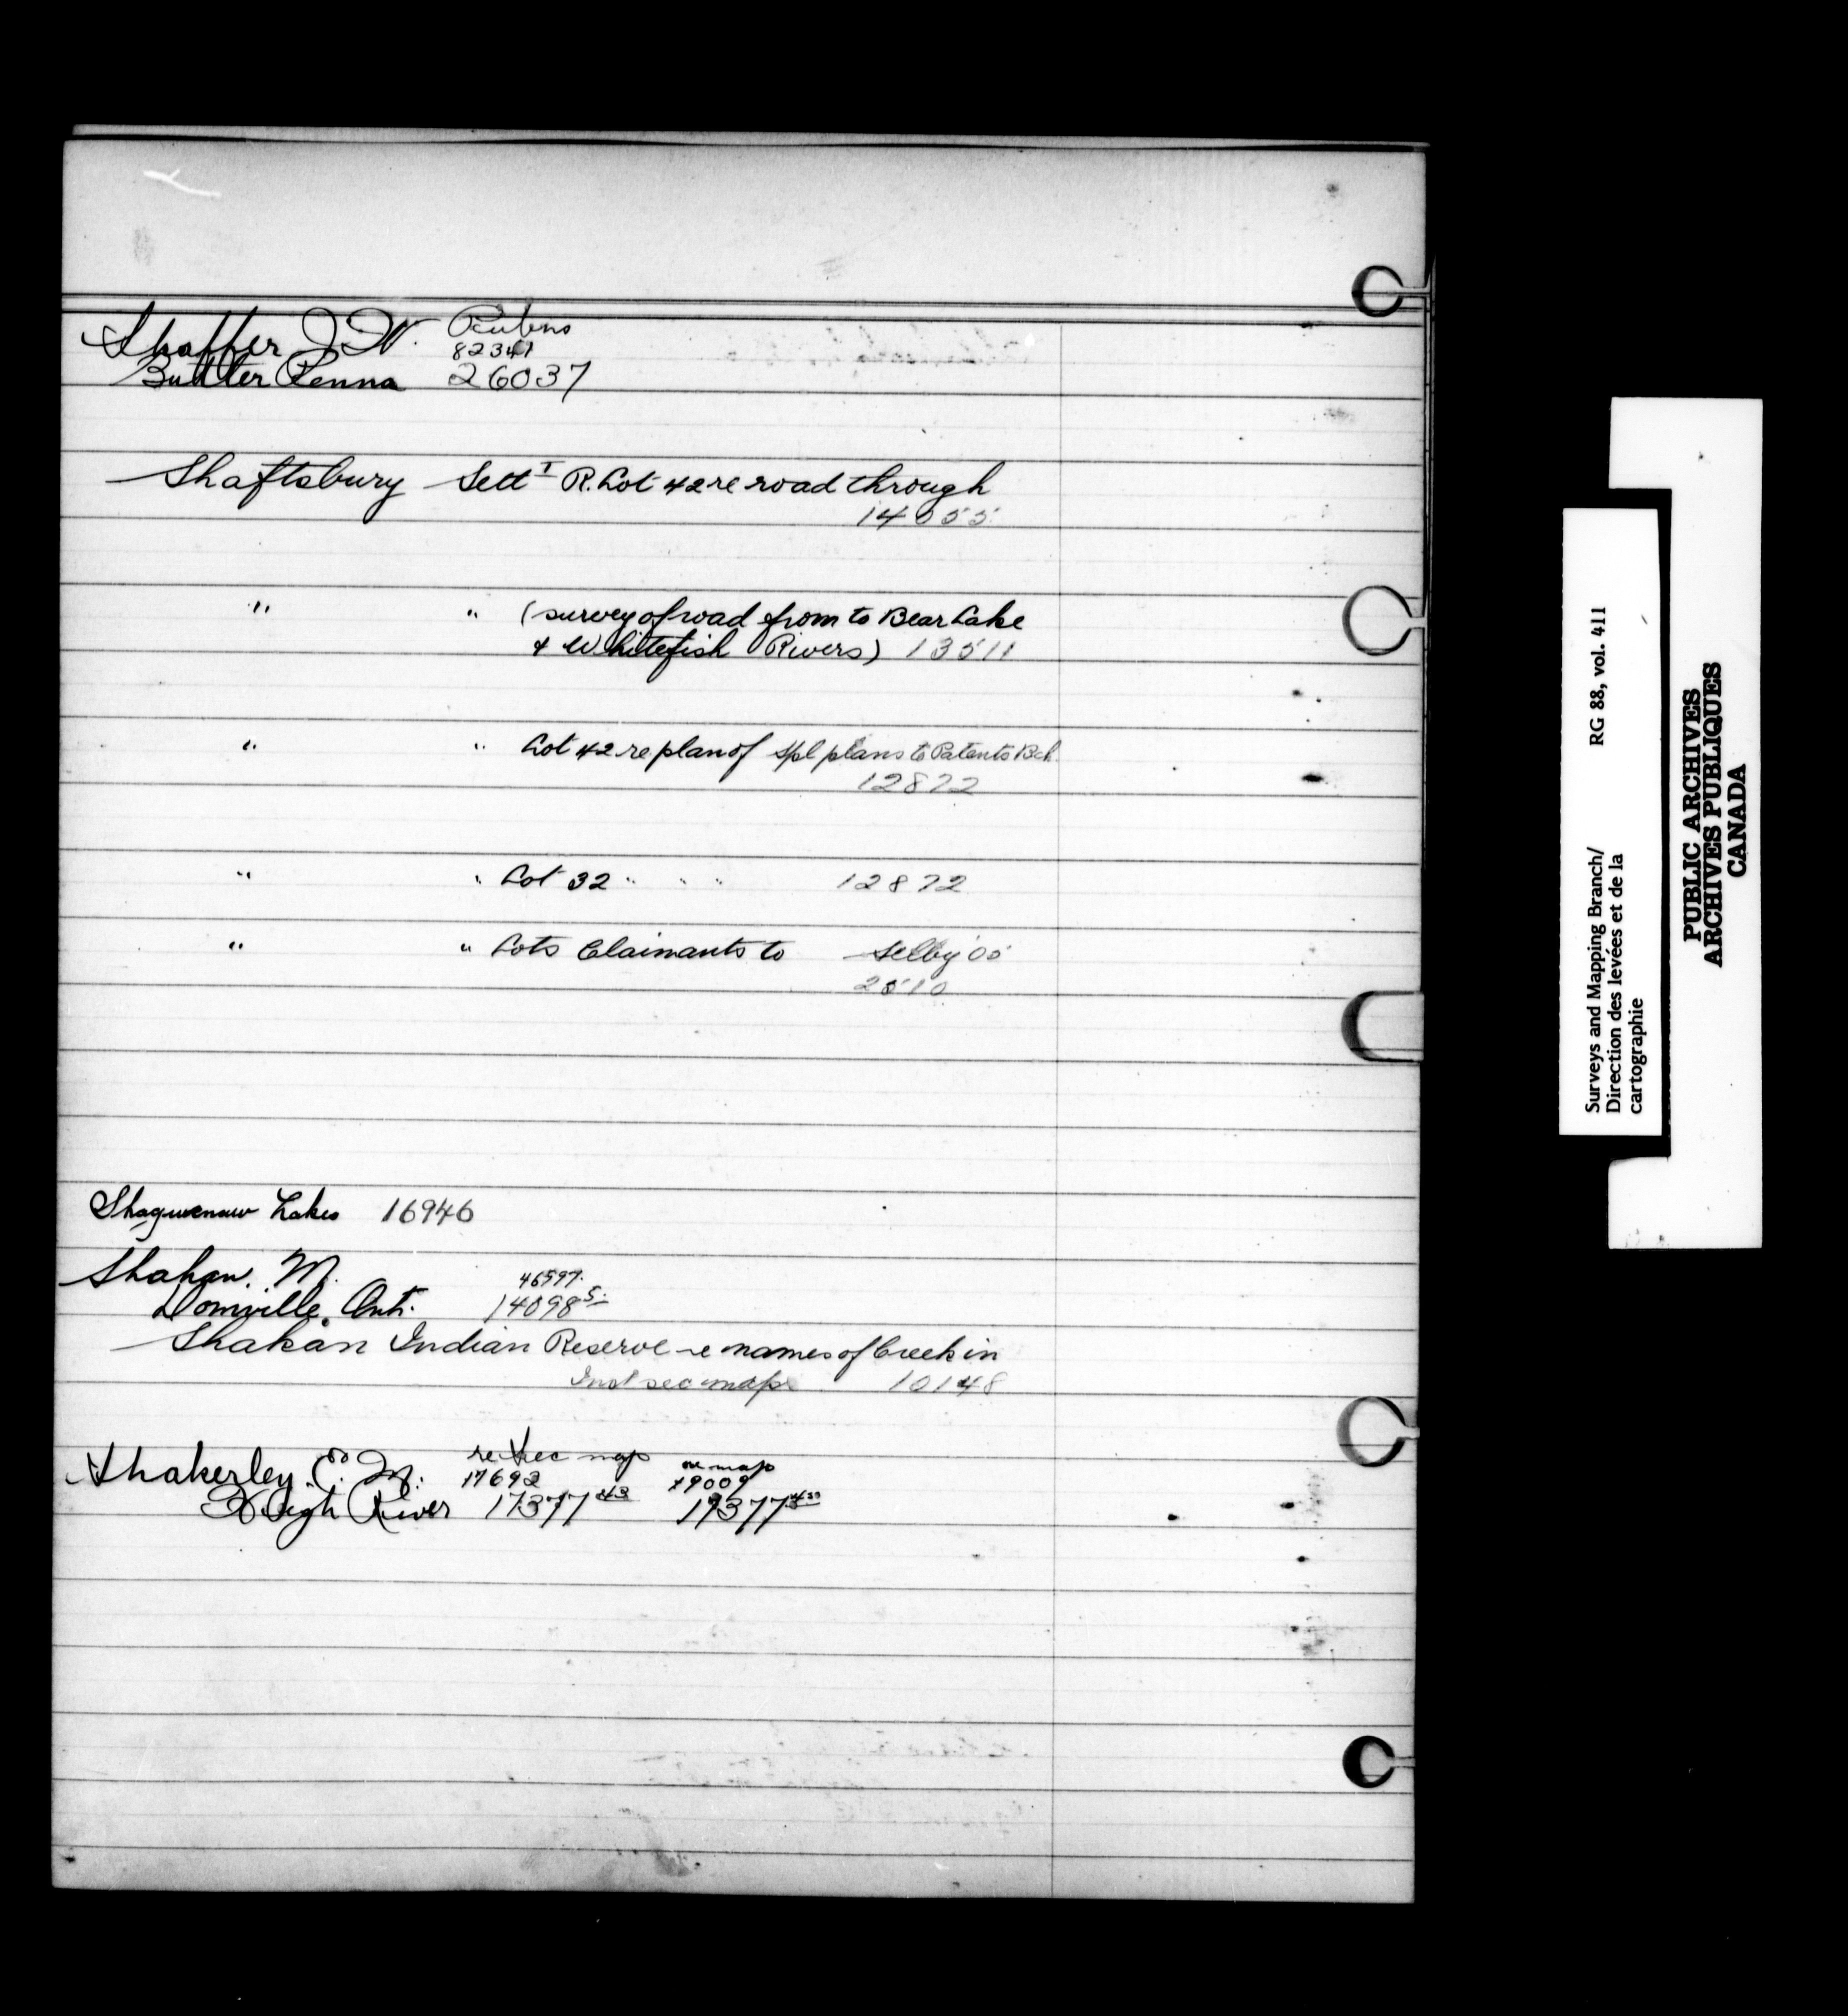 Shaffer J. W. Rubens
82341
Buttler Penna 26037
Shaftsbury Settᵗ R. Lot 42 re road through
14055
" " (survey of road from to Bear Lake
& Whitefish Rivers) 13511
" " Lot 42 re plan of Spl plans to Patents Bch.
12872
" " Lot 32 " " " 12872
" " Lots Claimants to Selby '05
2510
Shagwenaw Lakes 16946
Shahan, M. 46597.
Domville, Ont. 14098 5.
Shakan Indian Reserve re names of Creek in
Inst sec map 10148
Shakerley, E. M. re Sec map re map
17692 19009
High River 17377 43 17377
Surveys and Mapping Branch/ RG 88, vol. 411
Direction des levées et de la
cartographie
PUBLIC ARCHIVES
ARCHIVES PUBLIQUES
CANADA